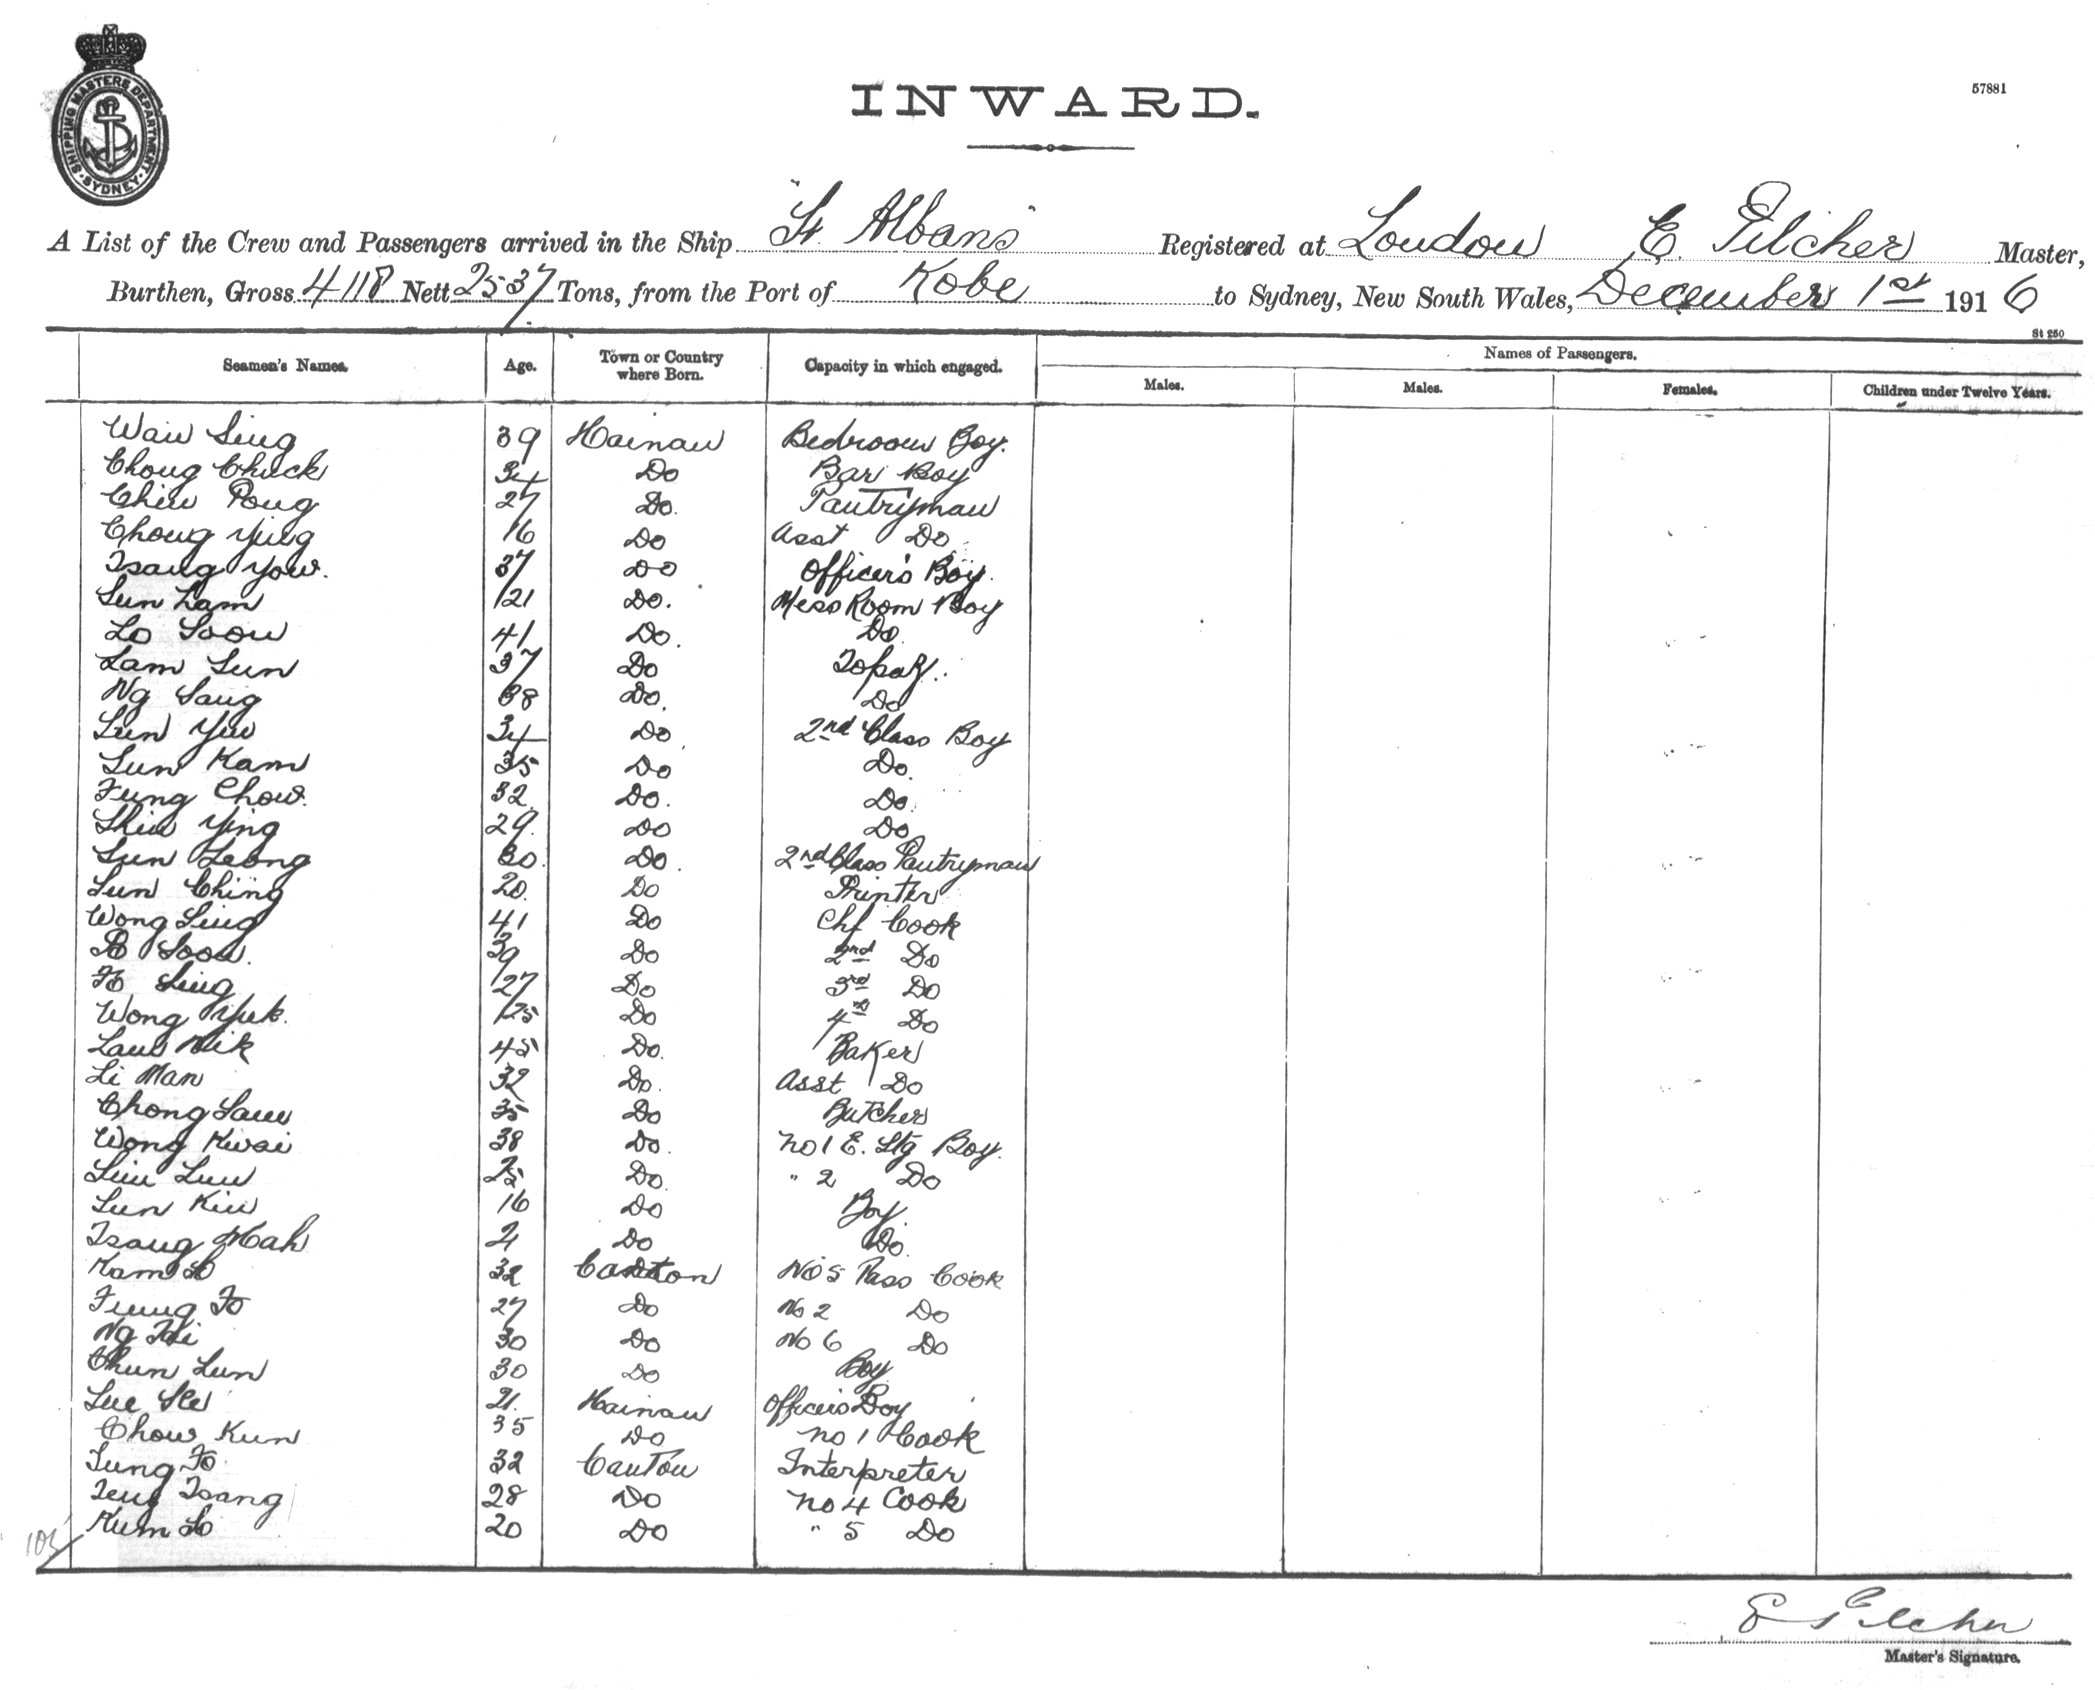 SHIPPING MASTERS DEPARTMENT · SYDNEY ·
INWARD.
57881
A List of the Crew and Passengers arrived in the Ship "St Albans" Registered at London E. Pilcher Master,
Burthen, Gross 4118 Nett 2537 Tons, from the Port of Kobe to Sydney, New South Wales, December 1st 1916
St 250
Seamen's Names. Age. Town or Country where Born. Capacity in which engaged. Names of Passengers.
Males. Males. Females. Children under Twelve Years.
Wan Sing 39 Hainan Bedroom Boy.
Chong Chuck 34 Do Bar Boy
Chin Pong 27 Do. Pantryman
Chong Ying 16 Do Asst Do
Tsang Yow. 37 Do Officer's Boy.
Sun Lam 21 Do. Mess Room Boy
Lo Soon 41 Do. Do.
Lam Sun 37 Do Topaz.
Ng Sang 38 Do. Do
Sun Yiu 34 Do 2nd Class Boy
Sun Kam 35 Do Do.
Fung Chow. 32 Do. Do.
Shiu Ying 29. Do Do
Sun Leong 30. Do. 2nd Class Pantryman
Sun Ching 20. Do Printer
Wong Sing 41 Do Chf Cook
Soon. 39 Do 2nd Do
Fo Sing 27 Do 3rd Do
Wong Yuk. 25 Do 4th Do
Lam 45 Do. Baker
Li Man 32 Do. Asst Do
Chong Sam 35 Do Butcher
Wong Kwai 38 Do. No 1 E. Stg Boy.
25 Do. " 2 Do
Sun Kiu 16 Do Boy.
Tsang Mah Do Do.
Kam So 32 Canton No 5 Pass Cook
Fung Fo 27 Do No 2 Do
Ng 30 Do No 6 Do
Chun Lun 30 Do Boy
21. Hainan Officers Boy
Chow Kun 35 Do No 1 Cook
Sung Fo. 32 Canton Interpreter
Tsang 28 Do No 4 Cook
Kum So 20 Do " 5 Do
105
E Pilcher
Master's Signature.